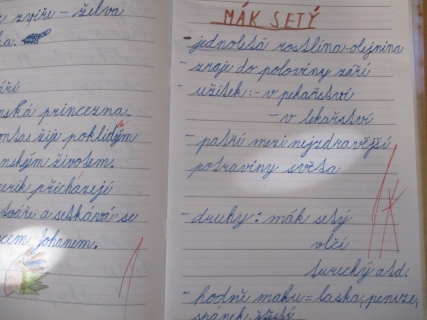 zvíře - želva
ka.
áří
nská princezna.
ontas žije poklidým
nským životem.
erik přicházejí
tváře a setkává se
cem Johanem.
MÁK SETÝ
- jednoletá rostlina-olejnina
- zraje do poloviny září
- užitek: - v pekařství
- v lékařství
- patří mezi nejzdravější
potraviny světa
- druhy: mák setý
vlčí
turecký atd.
- hodně maku = láska, peníze,
spánek, štěstí